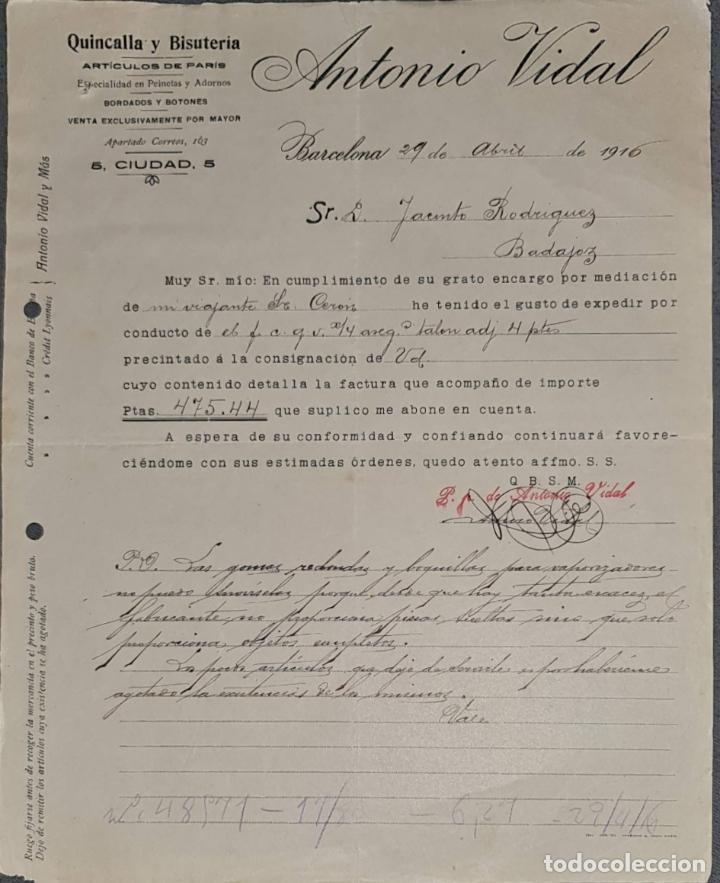 Quincalla y Bisutería
ARTÍCULOS DE PARÍS
Especialidad en Peinetas y Adornos
BORDADOS Y BOTONES
VENTA EXCLUSIVAMENTE POR MAYOR
Apartado Correos, 163
5, CIUDAD, 5
Antonio Vidal
Barcelona 29 de Abril de 1916
Sr. D. Jacinto Rodriguez
Badajoz
Muy Sr. mío: En cumplimiento de su grato encargo por mediación
de mi viajante Sr. Ceron he tenido el gusto de expedir por
conducto de el f. c. g. v. talon adj 4 ptes
precintado á la consignación de Vd
cuyo contenido detalla la factura que acompaño de importe
Ptas. 475.44 que suplico me abone en cuenta.
A espera de su conformidad y confiando continuará favore-
ciéndome con sus estimadas órdenes, quedo atento affmo. S. S.
Q. B. S. M.
P. p. de Antonio Vidal
P.D. Las gomas redondas y boquillas para vaporizadores
no puedo servirselas porque desde que hay tanta escasez, el
fabricante no proporciona piezas sueltas sino que solo
proporciona objetos completos.
Los pocos artículos que dejo de servirle es por habérseme
agotado la existencias de los mismos.
Vale
48571 - 17/ - 6,27 - 29/4/16
Cuenta corriente con el Banco de España
" " " Crédit Lyonnais
Antonio Vidal y Más
Ruego fijarse antes de recoger la mercancía en el precinto y peso bruto.
Dejo de remitir los artículos cuya existencia se ha agotado.
todocoleccion